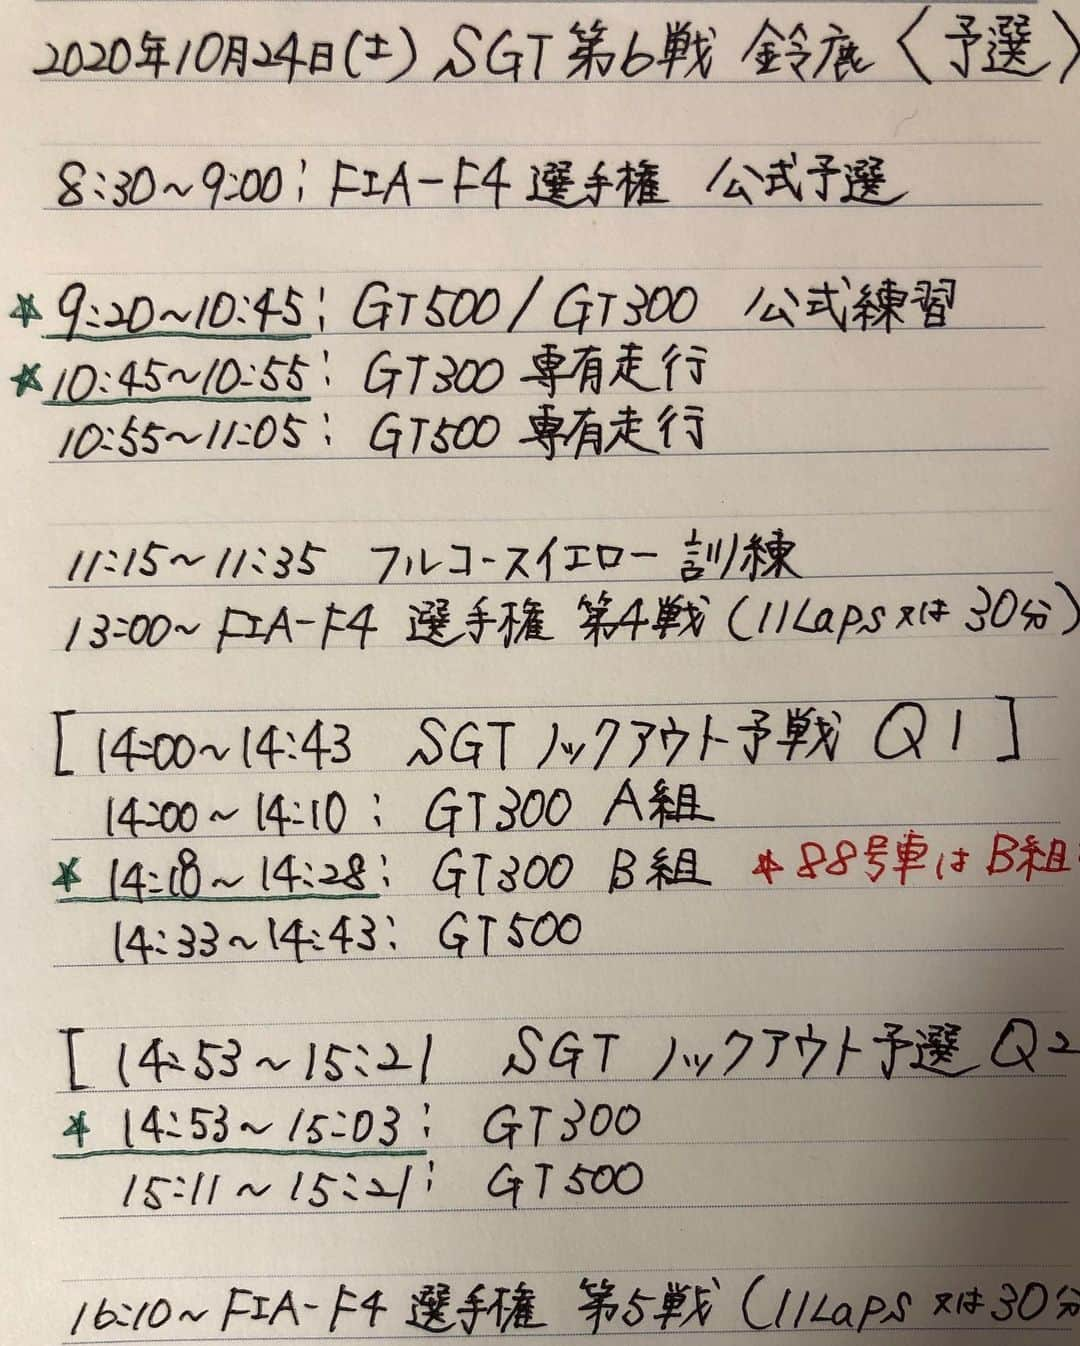 2020年10月24日(土) SGT 第6戦 鈴鹿〈予選〉
8:30~9:00: FIA-F4 選手権 公式予選
☆ 9:20~10:45: GT500/GT300 公式練習
☆ 10:45~10:55: GT300 専有走行
10:55~11:05: GT500 専有走行
11:15~11:35 フルコースイエロー訓練
13:00~FIA-F4 選手権 第4戦(11Laps又は30分)
[14:00~14:43 SGT ノックアウト予戦 Q1]
14:00~14:10: GT300 A組
☆ 14:18~14:28: GT300 B組 ☆88号車はB組
14:33~14:43: GT500
[14:53~15:21 SGT ノックアウト予選 Q2
☆ 14:53~15:03: GT300
15:11~15:21: GT500
16:10~FIA-F4 選手権 第5戦(11Laps又は30分